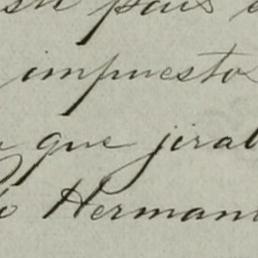 pais
impuesto
que jiral
Herman